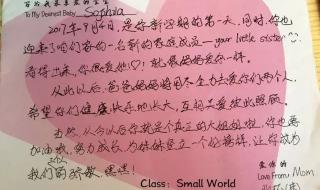 To My Dearest Baby Sophila
2017年9月4日,是你新学期的第一天,同时,你也
迎来了咱们家的一名新的家庭成员—your little sister
看得出来,你很爱她♡!就像妈妈爱你一样。
从此以后,爸爸妈妈将用尽全力去爱你们两个人,
希望你们健康快乐地长大,互相关爱彼此照顾。
当然,从今以后你就是个真正的大姐姐啦,你也要
加油哦,努力成长,为妹妹树立一个好榜样,让你成为
我们的骄傲,嘿嘿!
爱你的
Love From: Mom
Class: Small World